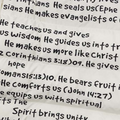 sians He seals us (Ephe
He makes evangelists of
He teaches us and gives
us wisdom He guides us into tr
He makes us more like Christ
Corinthians 3:18) He
hope
omans 15:13) 10. He bears fruit i
He comforts us (John 14:27)
He equipps with spiritual
ts The
Spirit brings unity